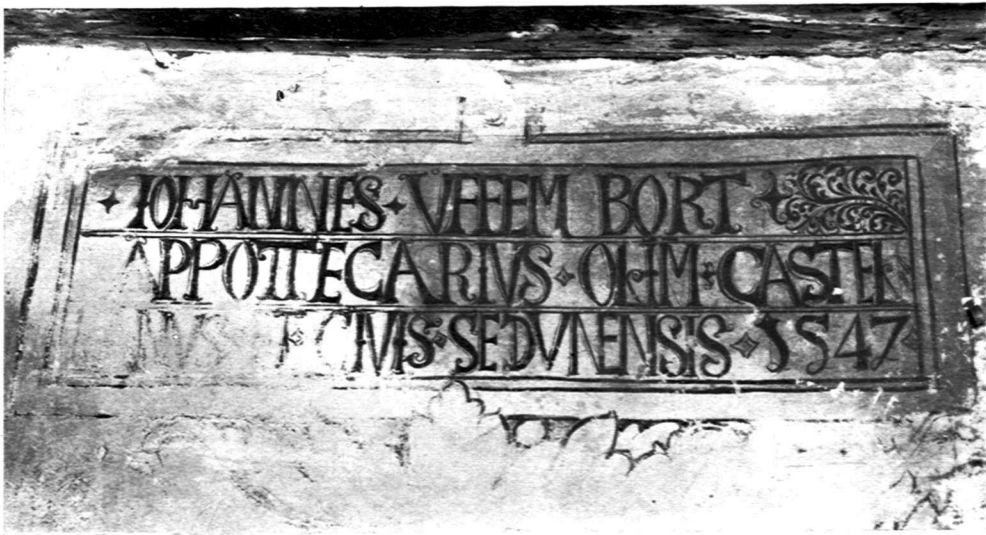 IOHANNES · VFFEM BORT
APPOTTECARIVS · OLIM · CASTELA
NVS CIVIS · SEDVNENSIS · 1547